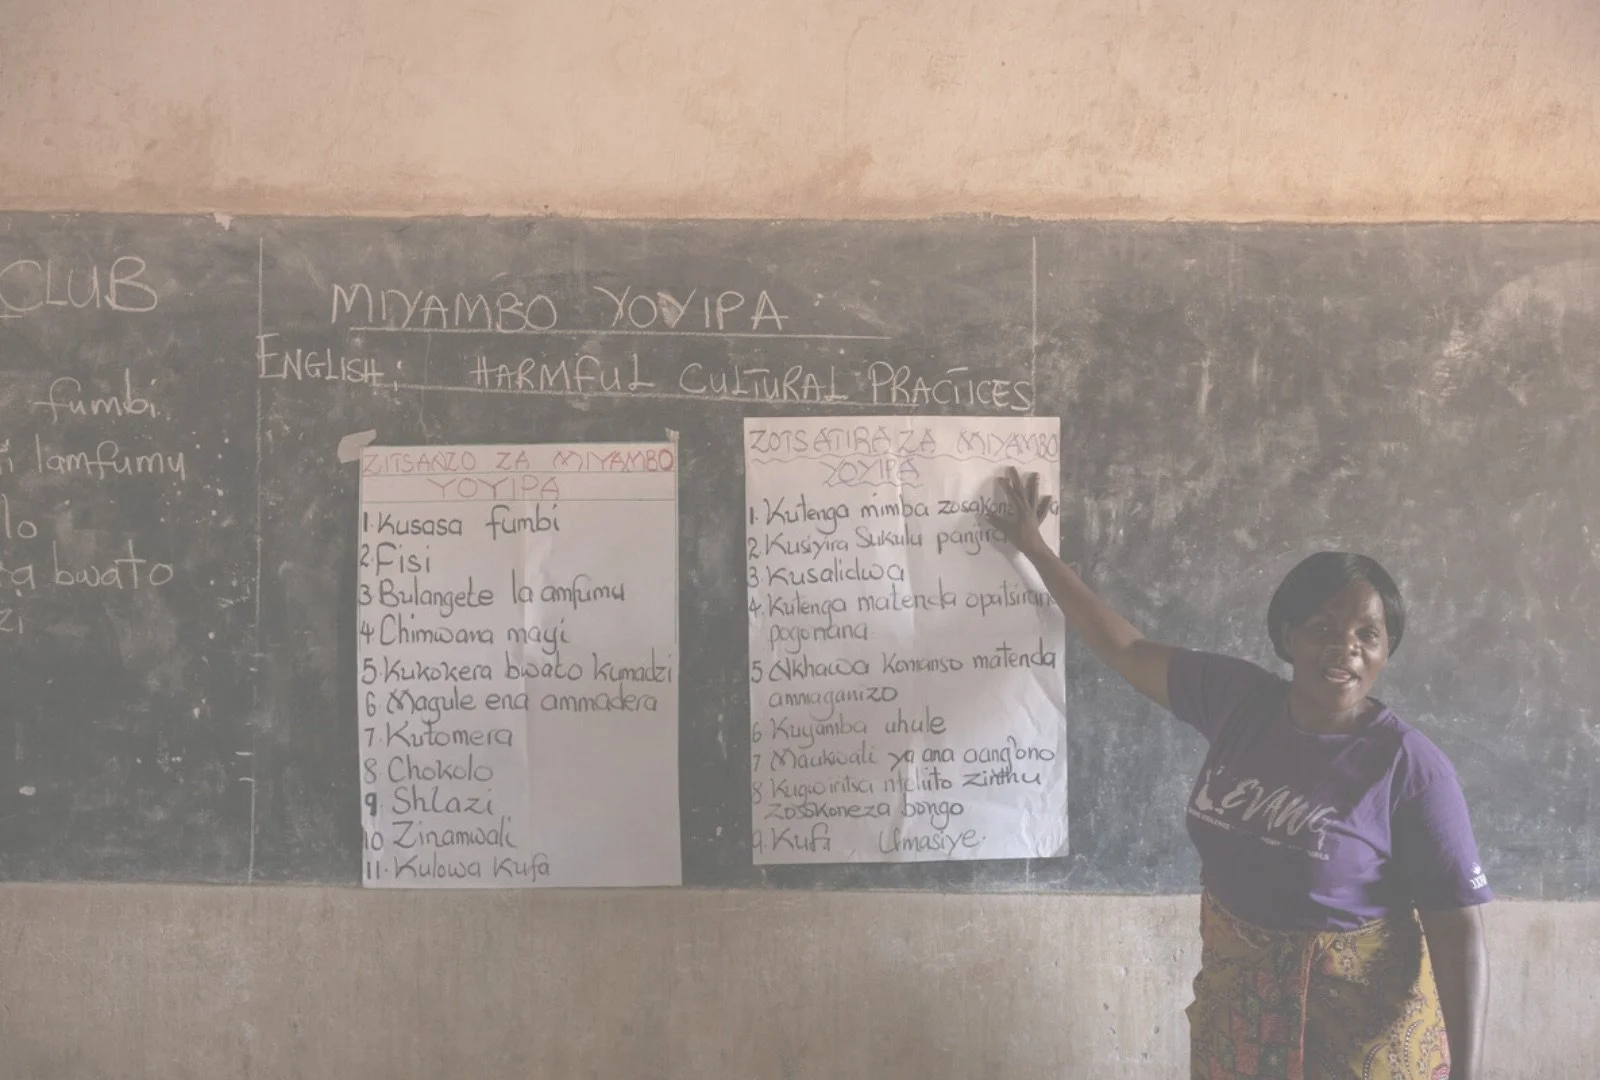 CLUB
fumbi
lamfumu
bwato
MIYAMBO YOYIPA
ENGLISH: HARMFUL CULTURAL PRACTICES
ZITSANZO ZA MIYAMBO
YOYIPA
1. Kusasa fumbi
2. Fisi
3 Bulangete la amfumu
4 Chimwana mayi
5. Kukokera bwato kumadzi
6. Magule ena ammadera
7. Kutomera
8 Chokolo
9 Shlazi
10 Zinamwali
11. Kulowa Kufa
ZOTSATIRA ZA MIYAMBO
YOYIPA
1. Kutenga mimba
2. Kusiyira Sukulu panjira
3. Kusalidwa
4. Kutenga matenda
pogonana
5 Nkhawa Komanso matenda
ammaganizo
6 Kuyamba uhule
7 Maukwali ya ana aang'ono
8 zinthu
zosokoneza bongo
9. Kufa Umasiye.
EVAWG